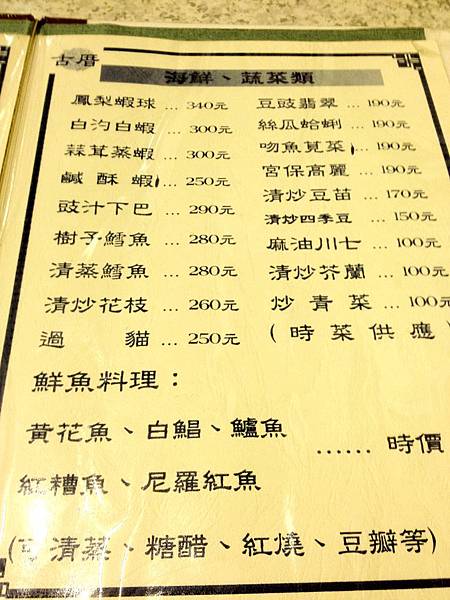 古厝
海鮮、蔬菜類
鳳梨蝦球 … 340元
白灼白蝦 … 300元
蒜茸蒸蝦 … 300元
鹹酥蝦 … 250元
豉汁下巴 … 290元
樹子鱈魚 … 280元
清蒸鱈魚 … 280元
清炒花枝 … 260元
過貓 … 250元
豆豉翡翠 … 190元
絲瓜蛤蜊 … 190元
吻魚莧菜 … 190元
宮保高麗 … 190元
清炒豆苗 … 170元
清炒四季豆 … 150元
麻油川七 … 100元
清炒芥蘭 … 100元
炒青菜 … 100元
(時菜供應)
鮮魚料理：
黃花魚、白鯧、鱸魚
…… 時價
紅糟魚、尼羅紅魚
(可清蒸、糖醋、紅燒、豆瓣等)